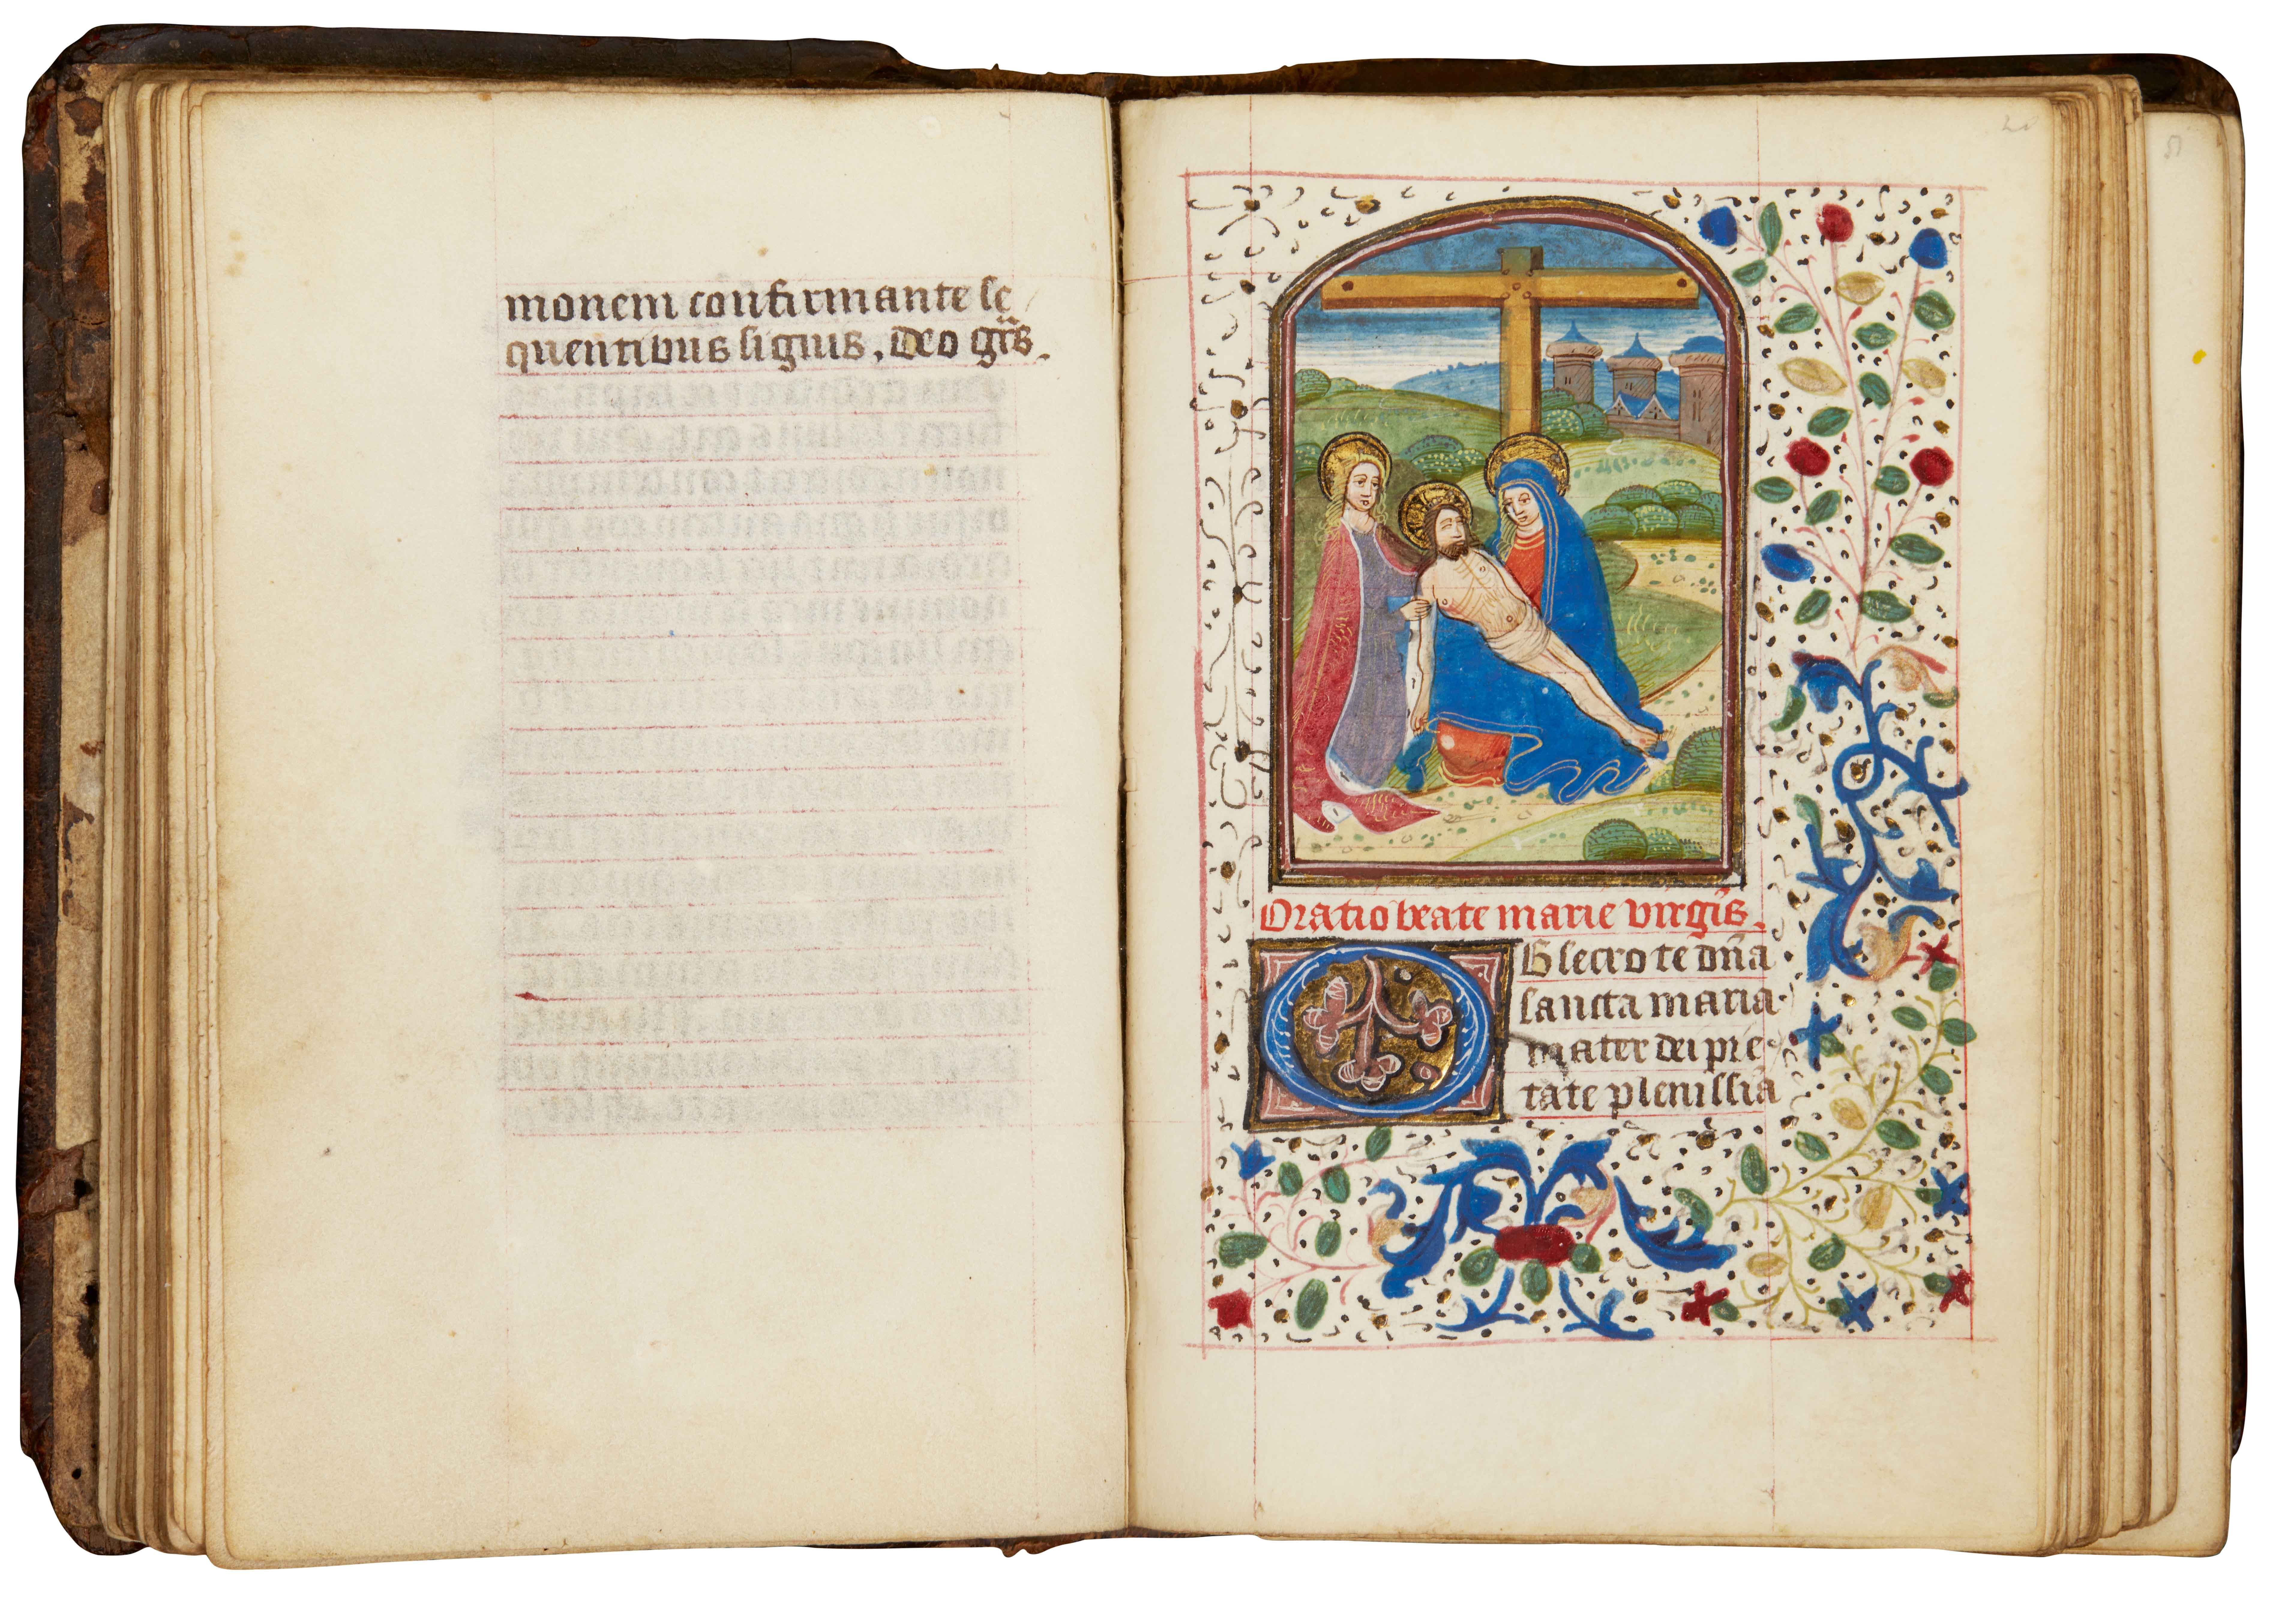 monem confirmante se/
quentibus signis, deo gr̃s.
Oratio beate marie virgĩs.
OBsecro te dñа
sancta maria
mater dei pie
tate plenissiã
51